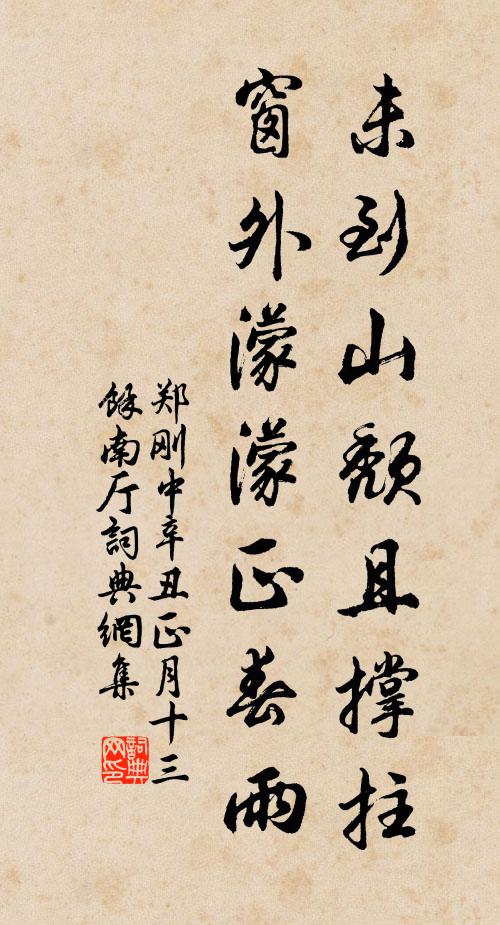 未到山頹且撐拄
窗外濛濛正春雨
郑刚中辛丑正月十三
餘南厅詞典網集
詞典
网印